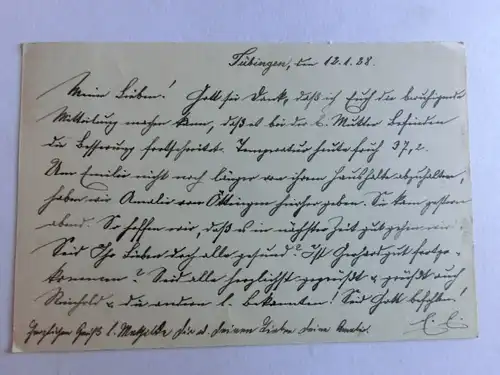 Tübingen, den 12.1.28.
Meine Lieben! Gott sei Dank, daß ich Euch die beruhigende
Mitteilung machen kann, daß es bei der l. Mutter Befinden
die Besserung fortschreitet. Temperatur heute früh 37,2.
Um Emilie nicht noch länger von ihrem Haushalte abzuhalten,
haben wir Amalie von Öttingen hierher gebeten. Sie kam gestern
abend. So hoffen wir, daß es in nächster Zeit gut gehen wird.
Seid Ihr Lieben doch alle gesund? Ist Gerhard gut fortge-
kommen? Seid alle herzlichst gegrüßt u. grüßt auch
Reinhold u. die andern l. Bekannten! Seid Gott befohlen!
Herzlichen Gruß l. Mathilde Dir u. Deinen Lieben Deine